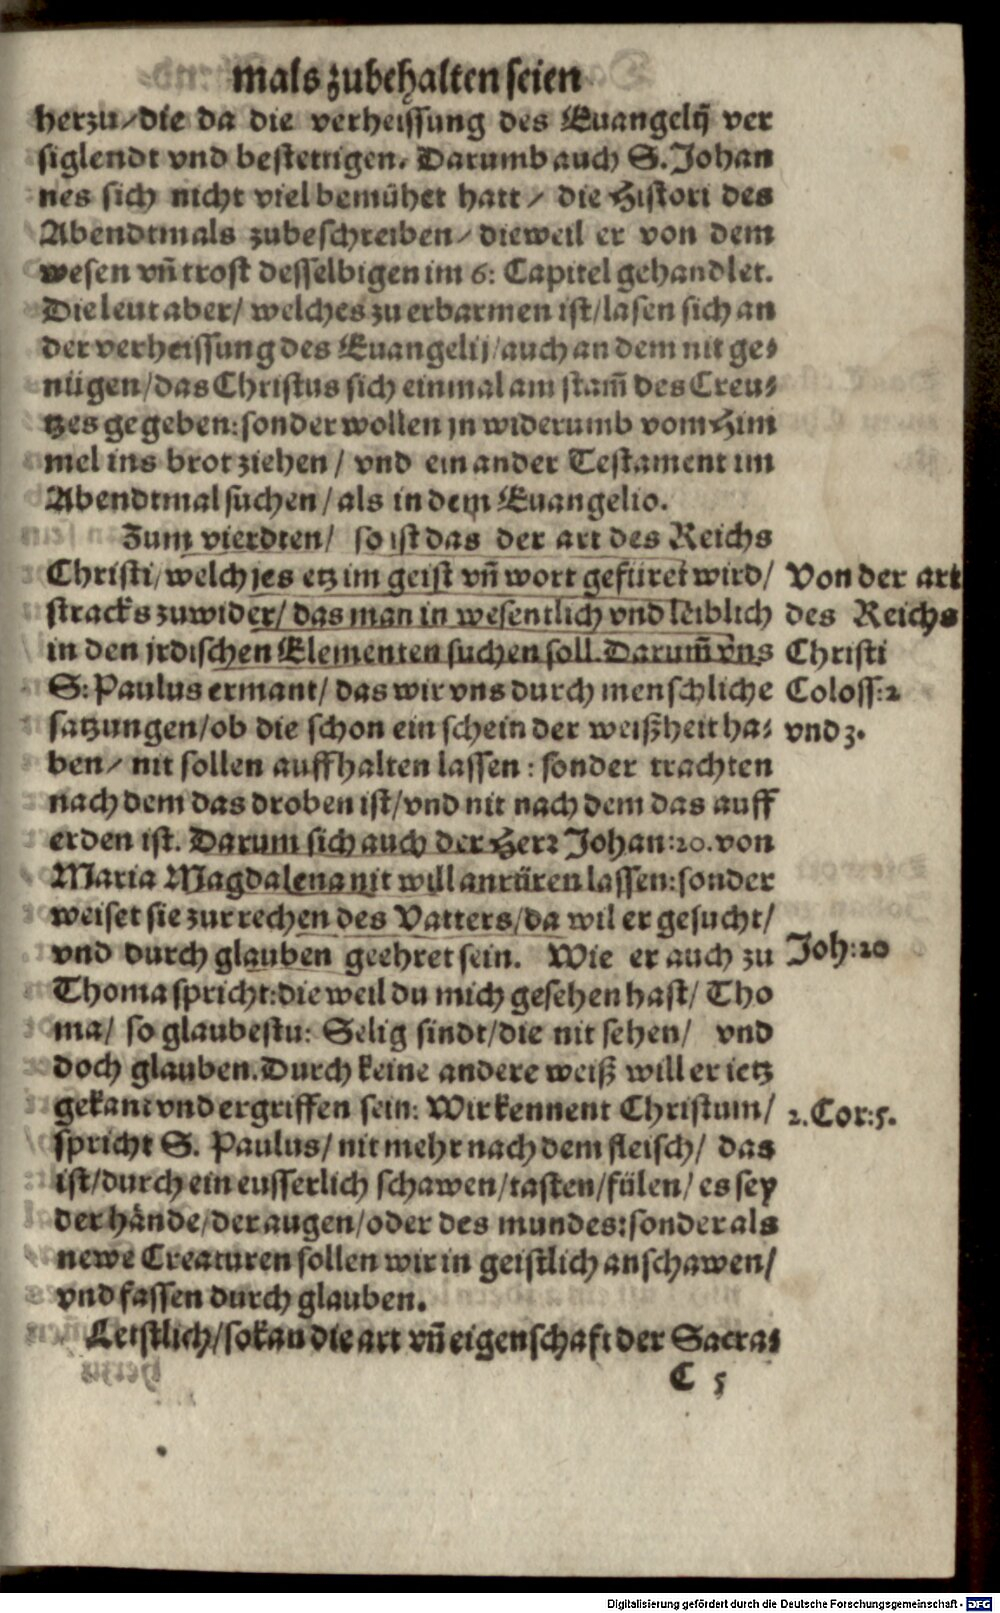 mals zubehalten seien
herzu/die da die verheissung des Euangelij ver
siglendt vnd bestettigen. Darumb auch S. Johan
nes sich nicht viel bemühet hatt/ die Histori des
Abendtmals zubeschreiben/ dieweil er von dem
wesen vñ trost desselbigen im 6: Capitel gehandlet.
Die leut aber/ welches zu erbarmen ist/ lasen sich an
der verheissung des Euangelij/ auch an dem nit ge-
nügen/ das Christus sich einmal am stam̃ des Creu-
tzes gegeben: sonder wollen jn widerumb vom Him
mel ins brot ziehen/ vnd ein ander Testament im
Abendtmal suchen/ als in dem Euangelio.
Zum vierdten/ so ist das der art des Reichs
Christi/ welch jes etz im geist vñ wort gefüret wird/
stracks zuwider/ das man in wesentlich vnd leiblich
in den jrdischen Elementen suchen soll. Darum̃ vns
S: Paulus ermant/ das wir vns durch menschliche
satzungen/ ob die schon ein schein der weißheit ha-
ben/ nit sollen auffhalten lassen: sonder trachten
nach dem das droben ist/ vnd nit nach dem das auff
erden ist. Darum sich auch der Herr Johan: 20. von
Maria Magdalena nit will anrüren lassen: sonder
weiset sie zur rechen des Vatters/ da wil er gesucht/
vnd durch glauben geehret sein. Wie er auch zu
Thoma spricht: die weil du mich gesehen hast/ Tho
ma/ so glaubestu: Selig sindt/ die nit sehen/ vnd
doch glauben. Durch keine andere weiß will er ietz
gekant vnd ergriffen sein: Wir kennent Christum/
spricht S. Paulus/ nit mehr nach dem fleisch/ das
ist/ durch ein eusserlich schawen/ tasten/ fülen/ es sey
der hände/ der augen/ oder des mundes: sonder als
newe Creaturen sollen wir in geistlich anschawen/
vnd fassen durch glauben.
Letstlich/ so kan die art vñ eigenschafft der Sacra-
C 5
Von der art
des Reichs
Christi
Coloss: 2
vnd 3.
Joh: 20
2. Cor: 5.
Digitalisierung gefördert durch die Deutsche Forschungsgemeinschaft - DFG